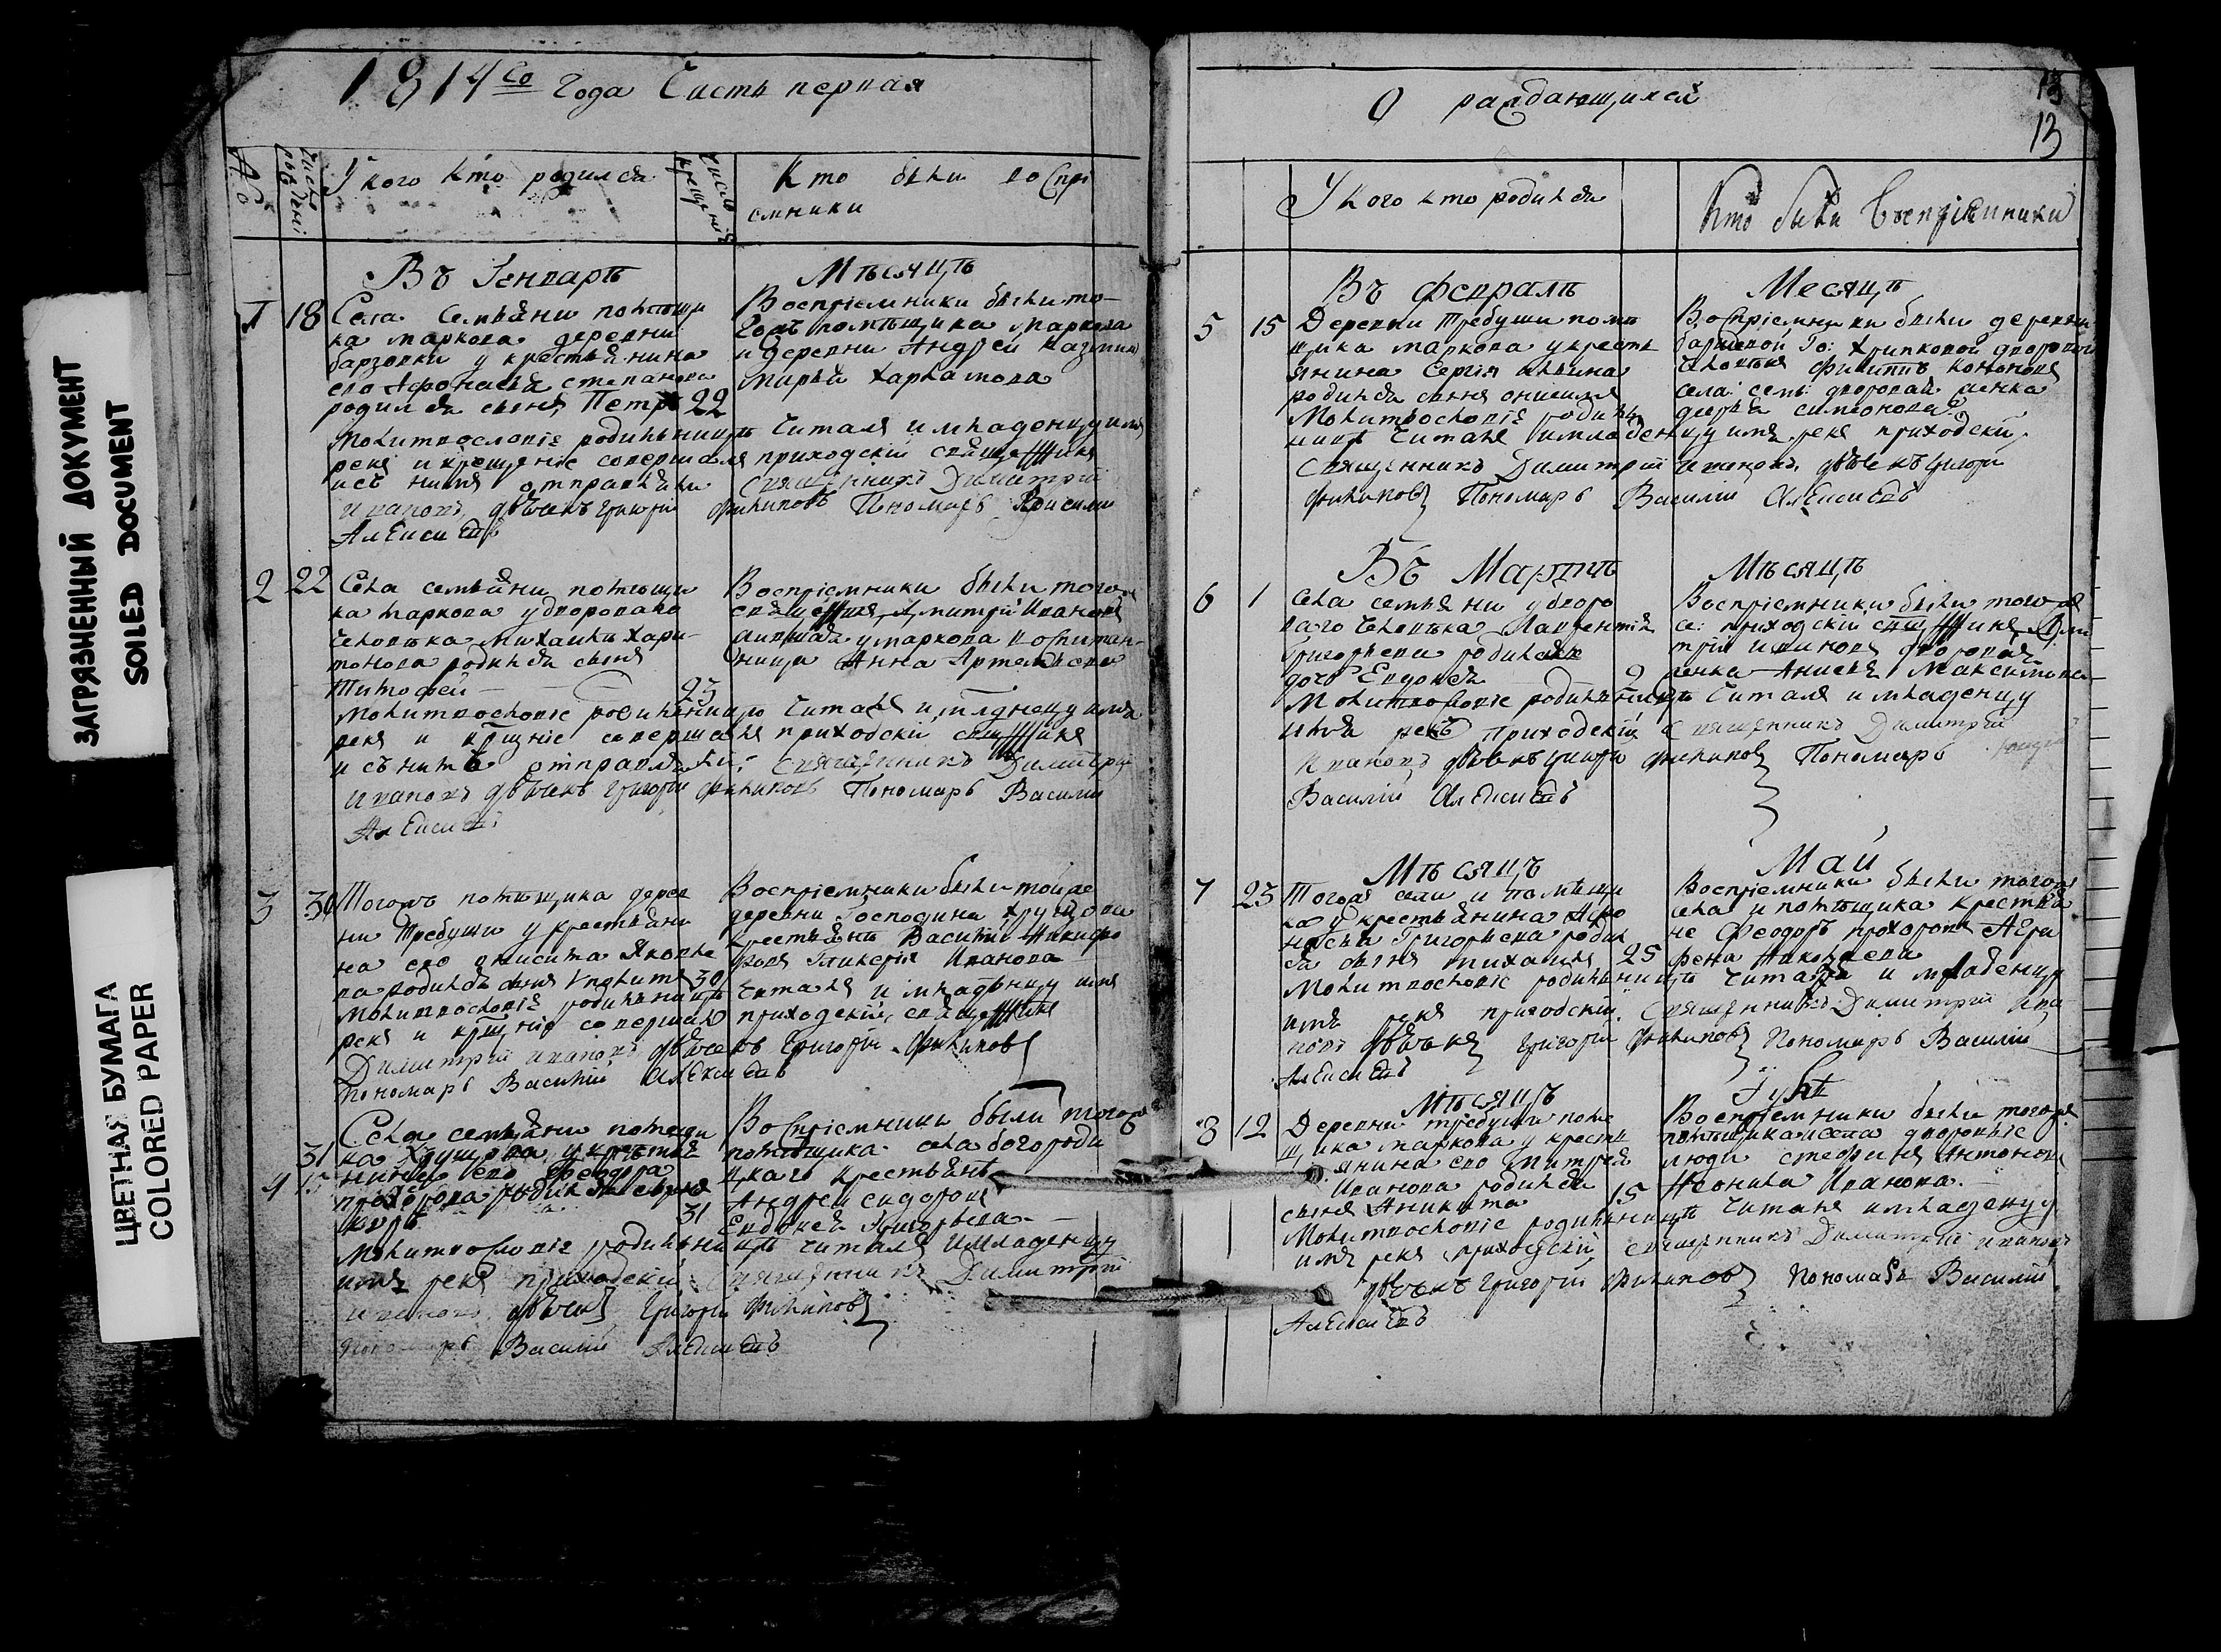 ЗАГРЯЗНЕННЫЙ ДОКУМЕНТ
SOILED DOCUMENT
ЦВЕТНАЯ БУМАГА
COLORED PAPER
1814го Года Часть первая
У кого кто родился
Кто были воспрі
емники
Въ Генваръ Мѣсяцъ
1 18 Села Семьяни помѣщи
ка маркова деревни
барзовки у крестьянина
его Афонасья степанова
родился сынъ Петръ 22
Воспріемники были то-
гожъ помѣщика маркова
и деревни Андреи
марья Харламова
Молитвословіе родильницѣ читалъ и младенцу имя
рекъ и крещеніе совершалъ приходскій
Священникъ Димитрій
Ивановъ дьячекъ григори филиповъ Пономарь Василии
Алексиевъ
2 22 Села семьяни помѣщи
ка маркова у двороваго
человѣка михаила Хари-
тонова родился сынъ
Тимофей 23
Воспріемники были тогожъ
Дмитрій Ивановъ
маркова
Анна Артемьева
Молитвословіе родильницѣ читалъ и
рекъ и совершалъ приходскій
Священникъ Димитри
Ивановъ дьячекъ григори филиповъ Пономарь Василии
Алексиевъ
3 30 Тогожъ помѣщика дерев
ни Требуши у крестьяни
на его Яковле
ва родился сынъ 30
Воспріемники были той же
деревни Господина Хрущова
крестьянинъ Василій Никифо
ровъ Гликерія Иванова
Молитвословіе родильницѣ читалъ и младенцу имя
рекъ и совершалъ приходскій
Димитрій ивановъ дьячекъ Григорій Филиповъ
Пономарь Василий Алексиевъ
4 31 Села семьяни помѣщи
ка Хрущова у крестья
нина его Феодора
прохорова родился сынъ
31
Воспріемники были тогожъ
помѣщика села богороди
цкаго крестьянъ
Андреи сидоровъ
Евдокея Григорьева
Молитвословіе родильницѣ читалъ и младенцу
имя рекъ приходскій Священникъ Димитрій
Ивановъ дьячекъ Григори Филиповъ
пономарь Василии Алексиевъ
О раждающихся
13
13
У кого кто родился
Кто были Воспріемники
Въ Февралѣ Месяцѣ
5 15 Деревни Требуши помѣ
щика маркова у кресть
янина Сергія
родился сынъ онисимъ
Воспріемники были деревни
дворовой
человѣкъ Филиппъ
села дворовая
симеонова
Молитвословіе родиль
ницѣ читалъ и младенцу имя рекъ приходски
Священникъ Димитрій Ивановъ дьячекъ григори
филиповъ Пономарь Василии Алексиевъ
Въ Мартѣ Мѣсяцѣ
6 1 Села семьяни у дворо
ваго человѣка Лаврентия
Григорьева родилась
дочь Евдокея 2
Воспріемники были тогожъ
се: приходскій Дми
трій ивановъ дворовая
Анисья Максимова
Молитвословіе родильницѣ читалъ и младенцу
имя рекъ приходскій Священникъ Димитрій
Ивановъ дьячекъ григори филиповъ Пономарь
Василій Алексиевъ
Мѣсяцъ Май
7 23 Тогожъ села и помѣщи
ка у крестьянина Афо
насья Григорьева родил
ся сынъ михаилъ 25
Воспріемники были тогожъ
села и помѣщика крестья
не Феодоръ прохоровъ Агра
фена Николаева
Молитвословіе родильницѣ читалъ и младенцу
имя рекъ приходскій Священникъ Димитрій Ива
новъ дьячекъ григорій филиповъ Пономарь Василій
Алексиевъ
Мѣсяцъ
8 12 Деревни требуши поме
щика маркова у кресть
янина его Дмитрея
Иванова родился
сынъ Аникита 15
Воспріемники были тогожъ
помѣщика села дворовые
люди стефанъ Антоновъ
Иванова
Молитвословіе родильницѣ читалъ и младенцу
имя рекъ приходскій священникъ Димитрій ивановъ
дьячекъ григорій филиповъ Пономарь Василій
Алексиевъ